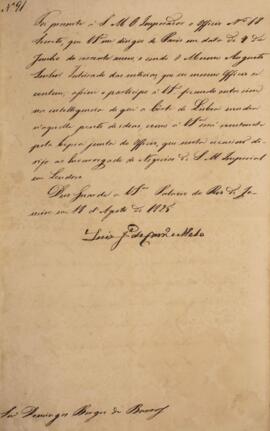 Nº 91
Foi presente a S. M. O Imperador o Officio Nº 18
Secreto, que VSª me dirigio de Paris em data de 4 de
Junho do corrente anno, e sendo o Mesmo Augusto
Senhor Inteirado das materias, que no mesmo Officio se
contem, assim o participo a VSª ficando outro sim
na intelligencia de que a Corte de Lisboa
naquelle ponto de ideas, como VSª será
pela Copia junta do Officio, que nesta occasião
dirijo ao Encarregado de Negocios de S. M. Imperial
em Londres.
Deos Guarde a VSª Palacio do Rio de Ja-
neiro em 18 de Agosto de 1825
Luiz Jº de Carvº e Mello
Snr Domingos Borges de Barros